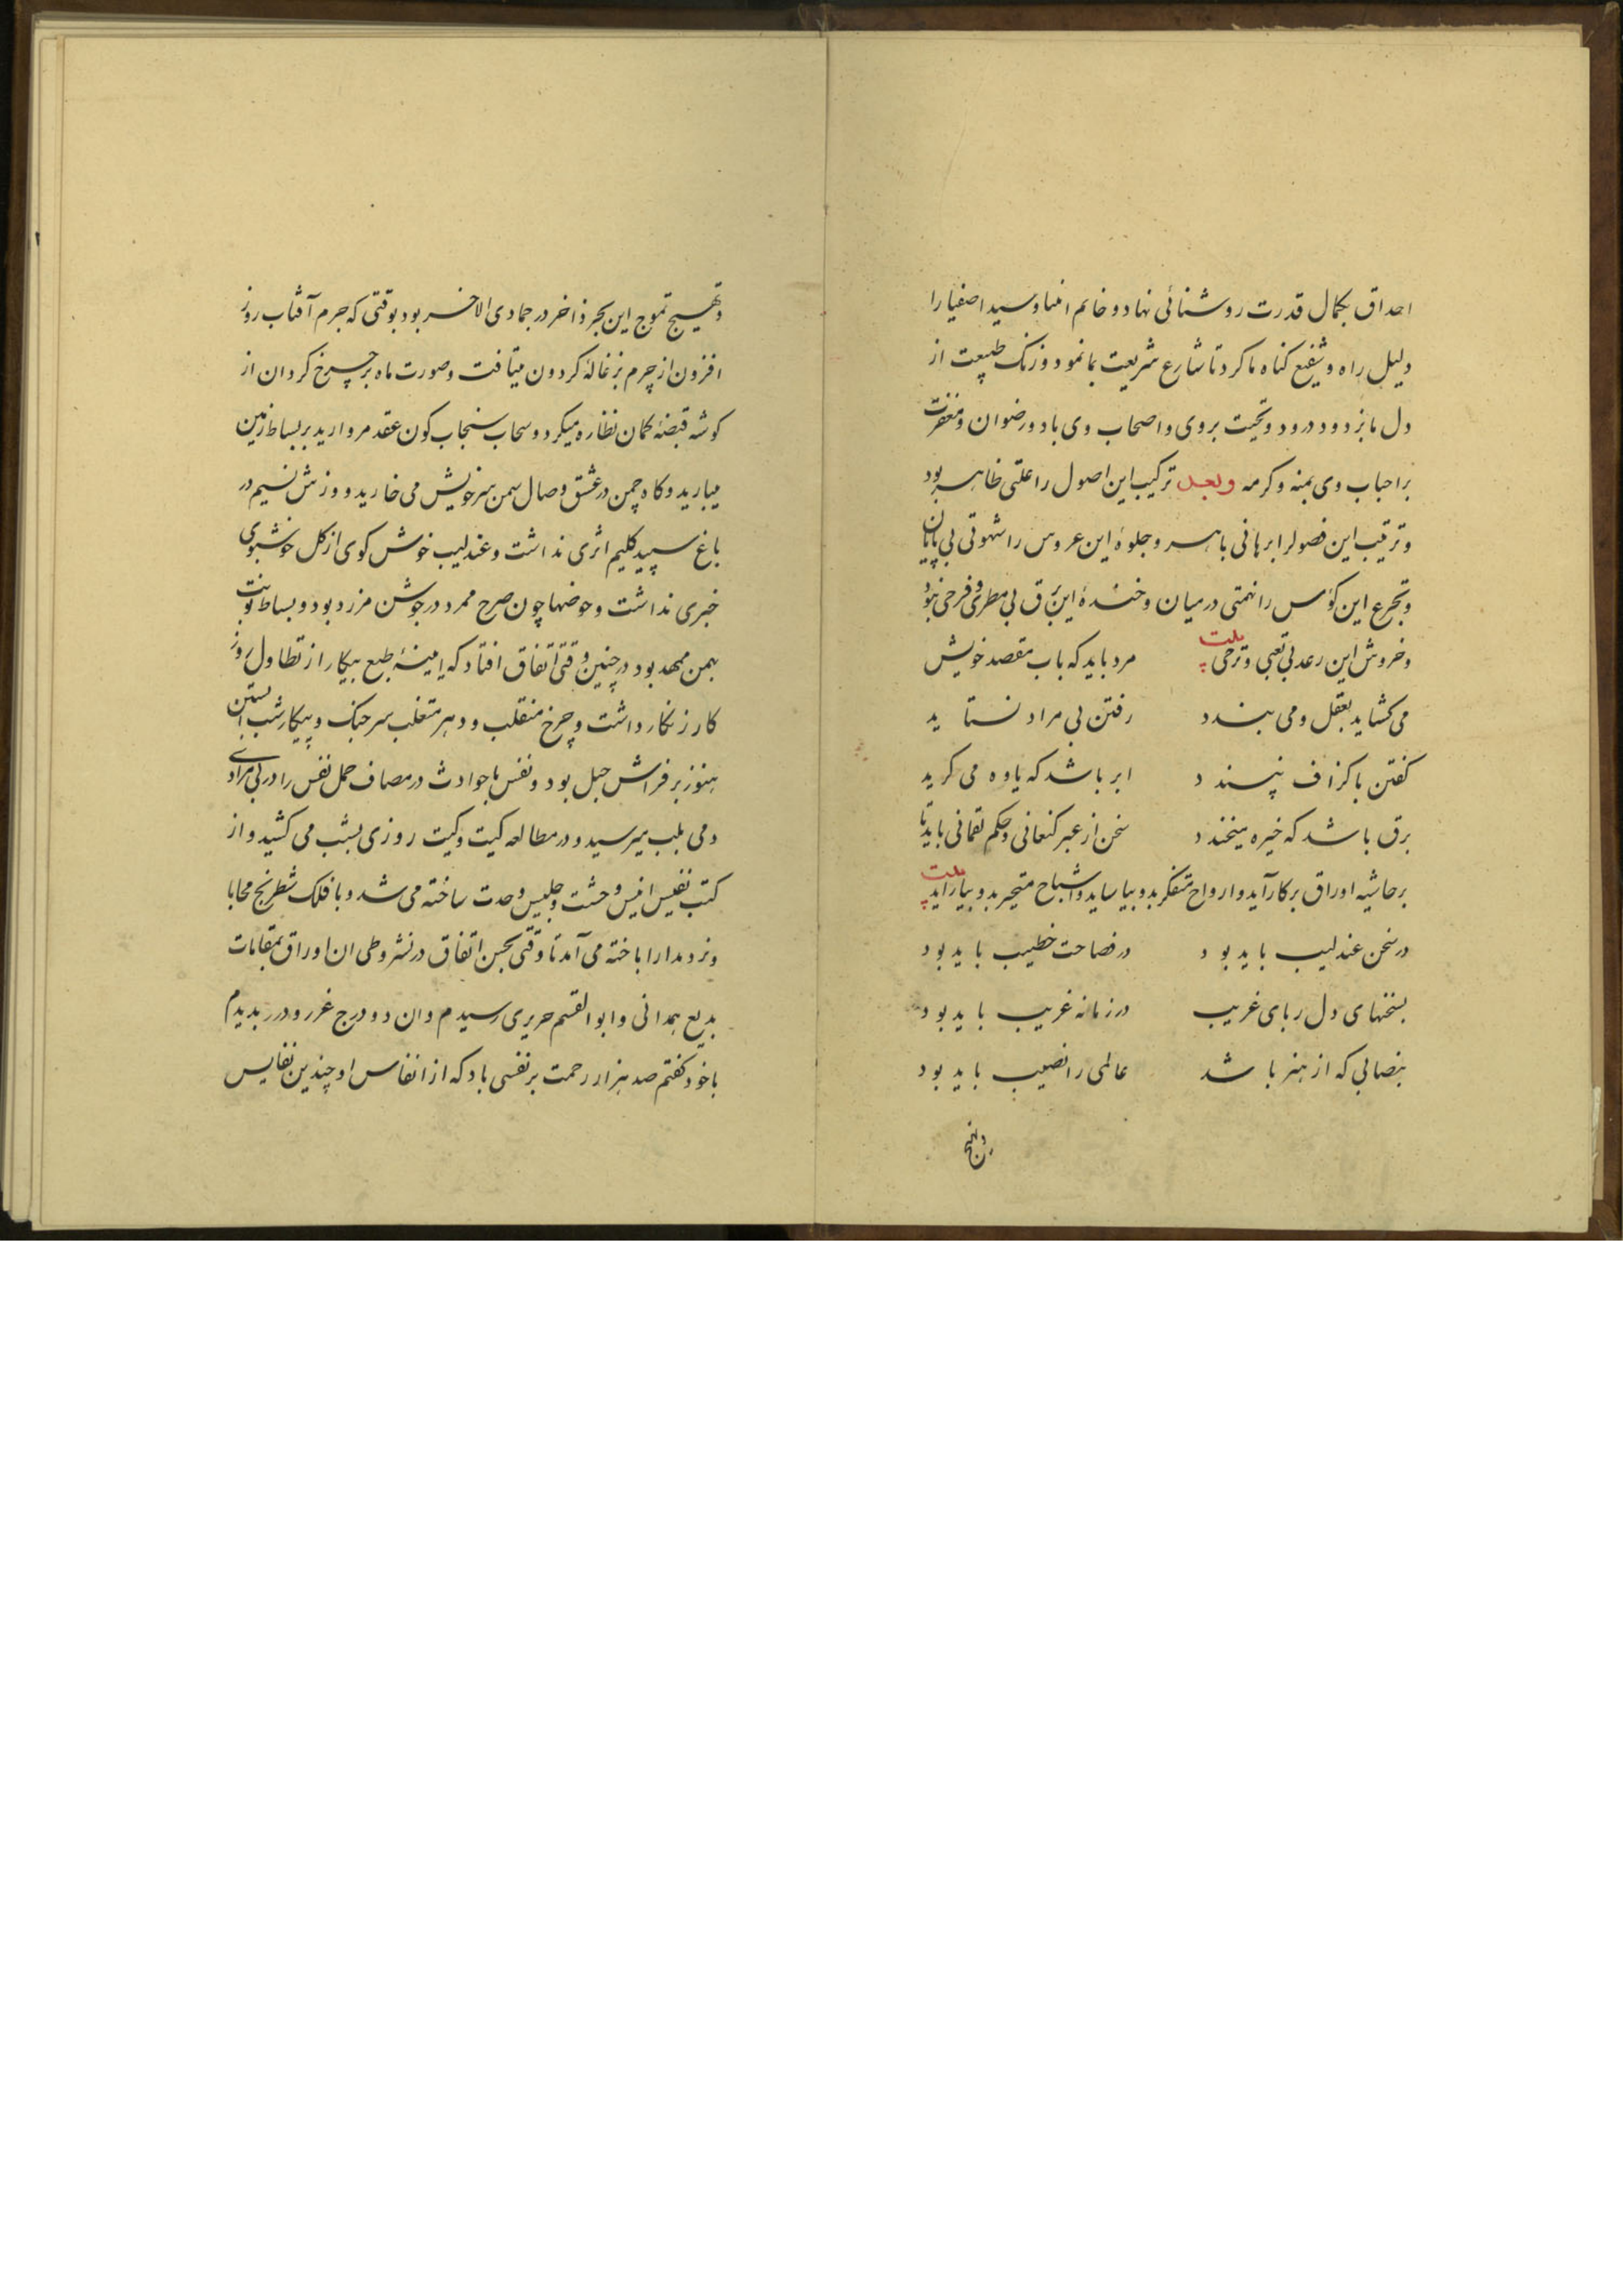 احداق بکمال قدرت روشنائی نهاد و خاتم انبیا و سید اصفیا را
دلیل راه و شفیع کناه ما کرد تا شارع شریعت بما نمود و زنک طبیعت از
دل ما بزدود درود و تحیت بروی و اصحاب وی باد و رضوان و مغفرت
بر احباب وی بمنه و کرمه وبعد ترکیب این اصول را علتی ظاهر بود
و ترتیب این فصول را برهانی باهر و جلوهٔ این عروس را شهوتی بی پایان
و تجرع این کؤس را نهمتی در میان و خندهٔ این برق بی مطربی و فرحی نبود
و خروش این رعد بی تعبی و ترحی بیت
مرد باید که باب مقصد خویش
می کشاید بعقل و می بندد
رفتن بی مراد نستاید
کفتن باکزاف نپسندد
ابر باشد که یاوه می کرید
برق باشد که خیره میخندد
سخن از عبر کنعانی و حکم لقمانی باید تا
بر حاشیه اوراق بر کار آید و ارواح متفکر بدو بیاساید و اشباح متحیر بدو بیاراید بیت
در سخن عندلیب باید بود
در فصاحت خطیب باید بود
بسخنهای دل ربای غریب
در زمانه غریب باید بود
بنصابی که از هنر باشد
عالمی را نصیب باید بود
و تهییج تموج این بحر ذاخر در جمادی الاخر بود بوقتی که جرم آفتاب روز
افزون از چرم بزغالهٔ کردون میتافت و صورت ماه بر چرخ کردان از
کوشه قبضهٔ کمان نظاره میکرد و سحاب سنجاب کون عقد مروارید بر بساط زمین
میبارید و کاه چمن در عشق وصال سمن سر خویش می خارید و وزش نسیم در
باغ سپید کلیم اثری نداشت و عندلیب خوش کوی از کل خوشبوی
خبری نداشت و حوضها چون صرح ممرد در جوشن مزرد بود و بساط نوبت
بهمن ممهد بود در چنین وقتی اتفاق افتاد که امینهٔ طبع بیکار از تطاول روز
کار زنکار داشت و چرخ منقلب و دهر متغلب سر جنک و پیکار شب آبستن
هنوز بر فراش حبل بود و نفس با حوادث در مصاف حمل نفس را در بی مرادی
دمی بلب میرسید و در مطالعه کیت و کیت روزی بشب می کشید و از
کتب نفیس انیس وحشت و جلیس وحدت ساخته می شد و با فلک شطرنج محابا
و نرد مدارا باخته می آمد تا وقتی بحسن اتفاق در نشر و طی ان اوراق بمقامات
بدیع همدانی و ابو القسم حریری رسیدم و ان دو درج غرر و درر بدیدم
با خود کفتم صد هزار رحمت بر نفسی باد که از انفاس او چندین نفایس